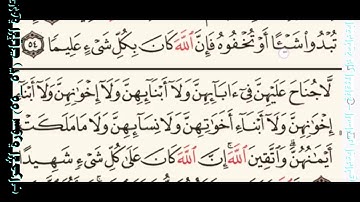 تُبْدُوا۟ شَيْـًٔا أَوْ تُخْفُوهُ فَإِنَّ ٱللَّهَ كَانَ بِكُلِّ شَىْءٍ عَلِيمًا ۝٥٤
لَّا جُنَاحَ عَلَيْهِنَّ فِىٓ ءَابَآئِهِنَّ وَلَآ أَبْنَآئِهِنَّ وَلَآ إِخْوَٰنِهِنَّ وَلَآ أَبْنَآءِ
إِخْوَٰنِهِنَّ وَلَآ أَبْنَآءِ أَخَوَٰتِهِنَّ وَلَا نِسَآئِهِنَّ وَلَا مَا مَلَكَتْ
أَيْمَٰنُهُنَّ ۗ وَٱتَّقِينَ ٱللَّهَ ۚ إِنَّ ٱللَّهَ كَانَ عَلَىٰ كُلِّ شَىْءٍ شَهِيدًا